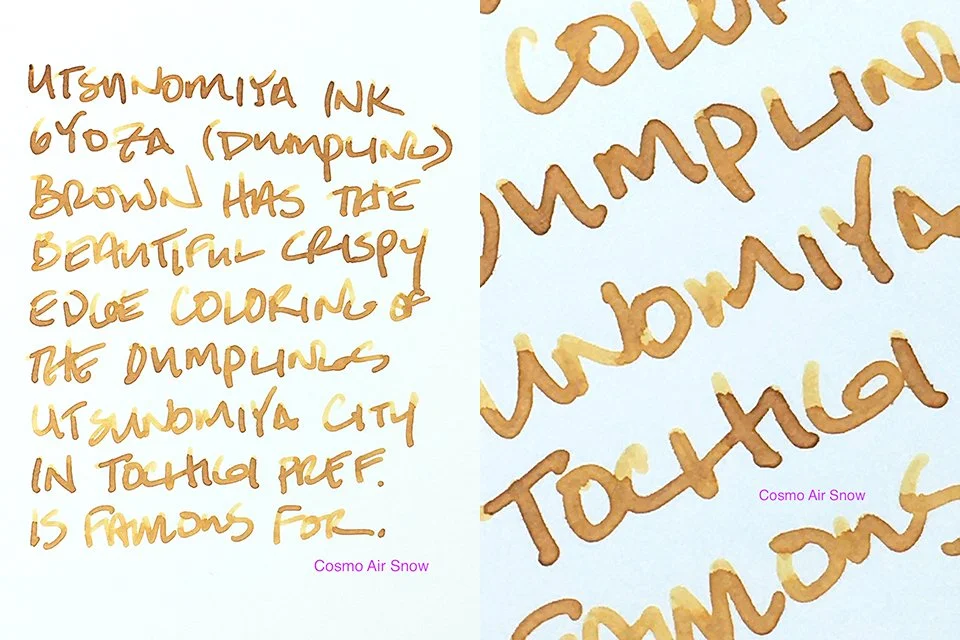 UTSUNOMIYA INK
GYOZA (DUMPLING)
BROWN HAS THE
BEAUTIFUL CRISPY
EDGE COLORING OF
THE DUMPLINGS
UTSUNOMIYA CITY
IN TOCHIGI PREF.
IS FAMOUS FOR.
Cosmo Air Snow
COLOR
DUMPLING
UNOMIYA
TOCHIGI
Cosmo Air Snow
FAMOUS